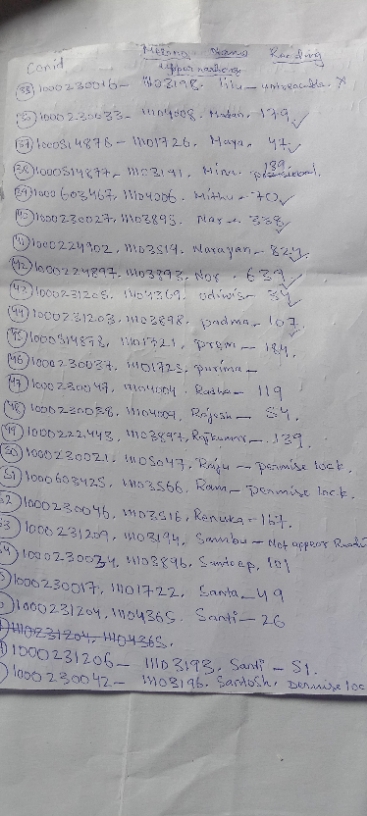 Conid Meter Name Reading
33 1000230016- 11103198. Lilu -
35 1000230033- 11104008. Madan. 179 ✓
37 1000514876- 1101726. Maya. 47 ✓
38 1000514877- 11103191. Minu 139.
39 1000603467, 11104006. Mithu- 70 ✓
40 1000230027, 11103895. Nar 338 ✓
41 1000224902, 11103519. Narayan- 827 ✓
42 1000224897. 11103893. Nar. 639 ✓
43 1000231208. 11104369. 54 ✓
44 1000231203. 11103898. padma- 107 ✓
45 1000514878, 1101721, prem- 184.
46 1000230037. 1101725. purima-
47 1000230047, 11104004. Radha- 119
48 1000230038. 11104009. Rajesh- 54.
49 1000222448, 11103897, Rajkumar-. 139.
50 1000230021. 11105047. Raju- permise lock.
51 1000603425, 11103566. Ram- permise lock.
52 1000230046, 11103516, Renuka- 167.
53 1000231209, 11103194. Sambu- Not appear
54 1000230034, 11103896, Sandeep, 101
1000230017, 1101722, Santa- 49
1000231204, 11104365. Santi- 26
1110231204, 11104365.
1000231206- 11103193. Santi- 51.
1000230042- 11103196. Santosh. permise loc